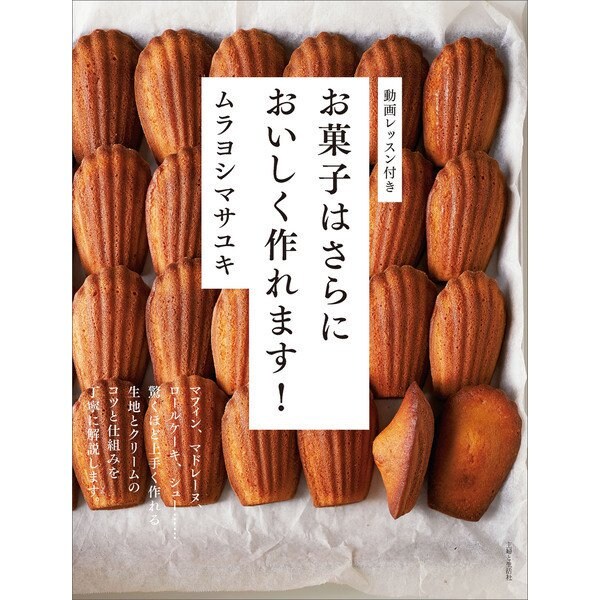 動画レッスン付き
お菓子はさらに
おいしく作れます！
ムラヨシマサユキ
マフィン、マドレーヌ、
ロールケーキ、シュー……
驚くほど上手く作れる
生地とクリームの
コツと仕組みを
丁寧に解説します。
主婦と生活社